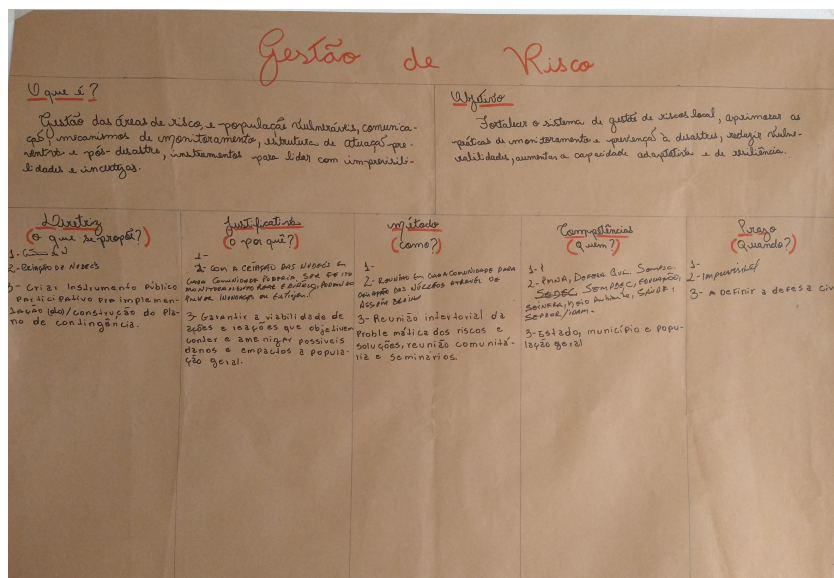 Gestão de Risco
O que é?
Gestão das áreas de risco, e população vulneráveis, comunica-
ção, mecanismos de monitoramento, estrutura de atuação pre-
ventiva e pós-desastre, instrumentos para lidar com imprevisibi-
lidades e incertezas.
Objetivo
Fortalecer o sistema de gestão de riscos local, aprimorar as
práticas de monitoramento e prevenção à desastres, reduzir vulne-
rabilidades, aumentar a capacidade adaptativa e de resiliência.
Diretriz
(O que se propõe?)
1-
2- Criação do NUDECS
3- Criar Instrumento Público
Participativo pra implemen-
tação (do)/construção do Pla-
no de contingência.
Justificativa
(O por quê?)
1-
2- Com a criação das NUDECS em
cada comunidade poderia ser feito
monitoramento
3- Garantir a viabilidade de
ações e reações que objetivem
conter e amenizar possiveis
danos e empactos a popula-
ção geral.
método
(como?)
1-
2- Reunião em cada comunidade para
criação dos núcleos através de
3- Reunião intertorial da
Problemática dos riscos e
soluções, reunião comunitá-
ria e seminários.
Competências
(Quem?)
1-
2- Defesa Civil,
SEDEC, SEMPDEC,
SEINFRA, Meio Ambiente, Saúde,
SEPROR/IDAM.
3- Estado, município e popu-
lação geral
Prazo
(Quando?)
1-
2- Imprevisível
3- A Definir a defesa civ